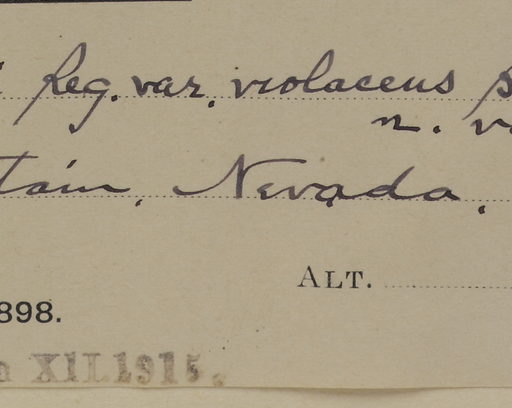 Reg. var. violaceus
n. v
tain, Nevada.
ALT.
898.
XII.1915.